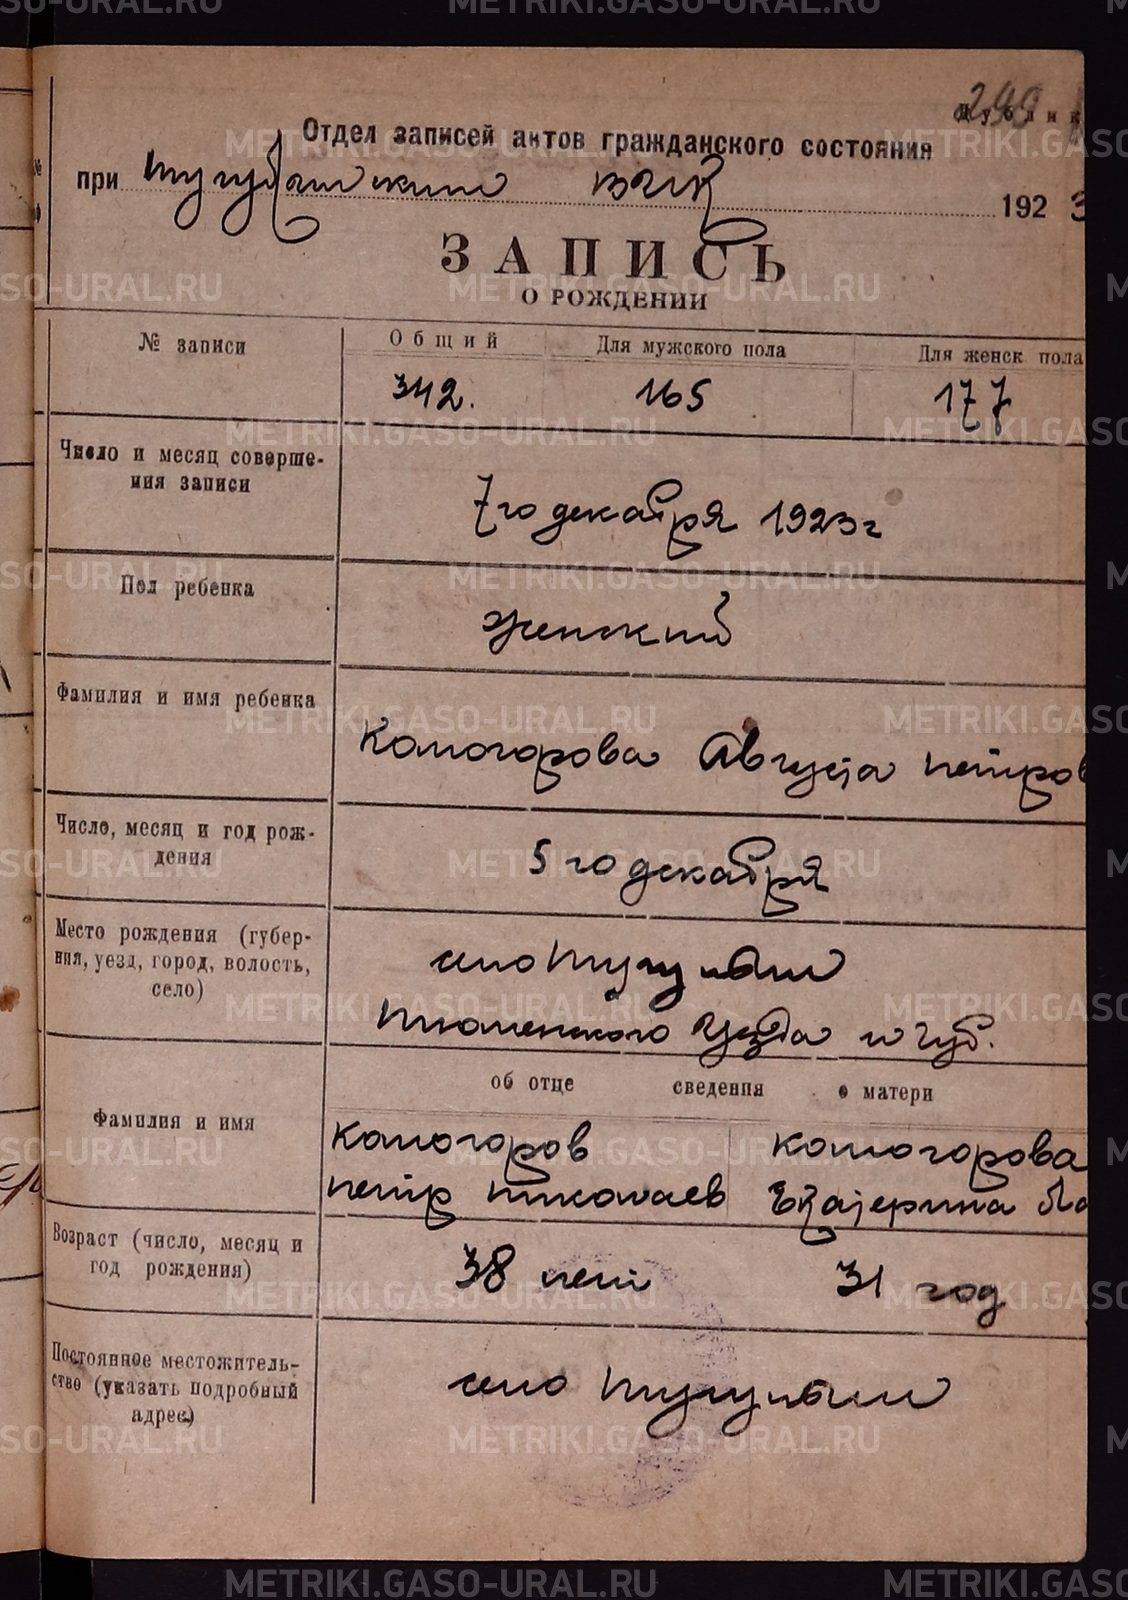 299
Дублик
Отдел записей актов гражданского состояния
при Тугулымским ВИК 1923
ЗАПИСЬ
О РОЖДЕНИИ
№ записи
Общий
Для мужского пола
Для женск пола
342.
165
177
Число и месяц соверше-
ния записи
7го декабря 1923 г
Пол ребенка
женский
Фамилия и имя ребенка
Комогорова Августа Петров
Число, месяц и год рож-
дения
5 го декабря
Место рождения (губер-
ния, уезд, город, волость,
село)
село Тугулым
Тюменского Уезда и губ.
об отце сведения о матери
Фамилия и имя
Комогоров
Петр Николаев
Комогорова
Екатерина
Возраст (число, месяц и
год рождения)
38 лет
31 год
Постоянное местожитель-
ство (указать подробный
адрес)
село Тугулым
METRIKI.GASO-URAL.RU